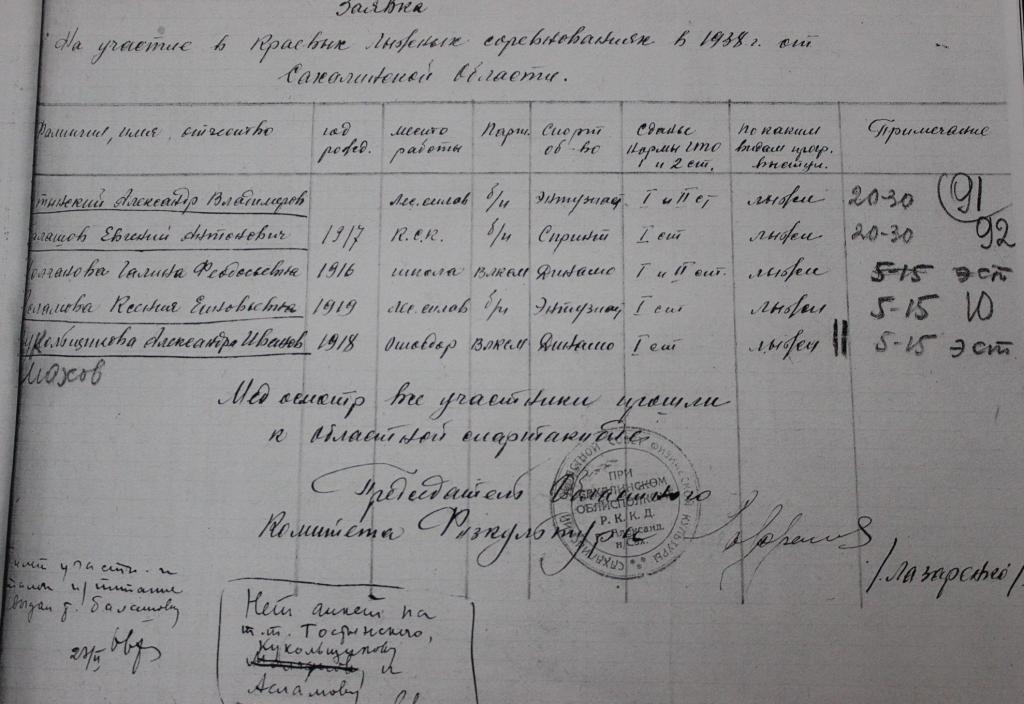 Заявка
На участие в краевых лыжных соревнованиях в 1938 г. от
Сахалинской Области.
Фамилия, имя, отчество год рожд. место работы Парт. Спорт об-во Сданы нормы ГТО 1 и 2 ст. По каким видам прогр. выступ. Примечание
тынский Александр Владимиров Лес.сплав б/п Энтузиаст I и II ст лыжи 20-30 91
алашов Евгений Антонович 1917 К.С.К. б/п Спринт I ст лыжи 20-30 92
олчанова Галина Феодосьевна 1916 школа ВЛКСМ Динамо I и II ст. лыжи 5-15 эст
сламова Ксения Епиовьевна 1919 Лес.сплав б/п Энтузиаст I ст лыжи 5-15 Ю
укольщикова Александра Иванов 1918 ВЛКСМ Динамо I ст лыжи 5-15 эст
Мохов
Мед осмотр все участники прошли
к областной спартакиаде
Председатель
Комитета Физкультуры
/Лазаренко/
СОВЕТ ФИЗИЧЕСКОЙ КУЛЬТУРЫ
ПРИ
САХАЛИНСКОМ
ОБЛИСПОЛКОМЕ
Р. К. К. Д.
г. Александ.
н/Сах.
участн. и
талон н/питание
выдан т. Балашову
23/II
Нет анкет на
т.т. Тостынского,
Кукольщикову
и
Асламову